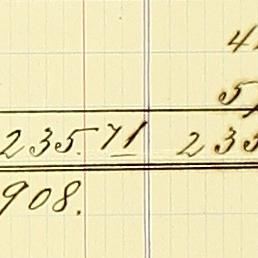 4
5
235.71 233
908.